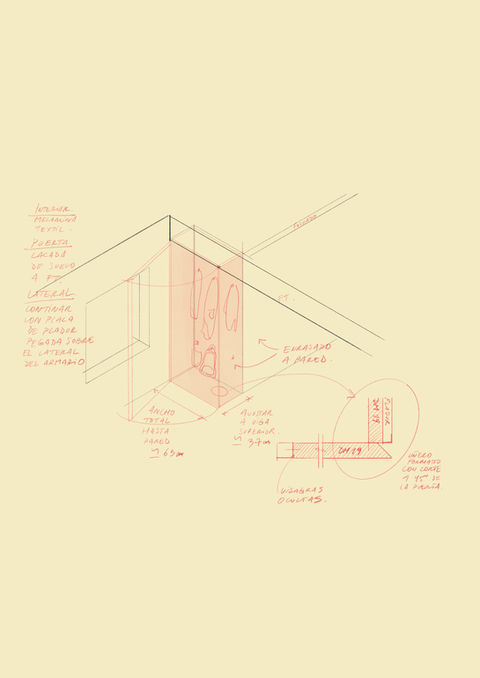 INTERIOR
MELAMINA
TEXTIL.
PUERTA
LACADA
DE SUELO
A FT.
LATERAL
CONTINAR
CON PLACA
DE PLADUR
PEGADA SOBRE
EL LATERAL
DEL ARMARIO
FORJADO
FT.
ENRASADO
A PARED.
ANCHO
TOTAL
HASTA
PARED
65cm
AJUSTAR
A VIGA
SUPERIOR.
37cm
PLADUR
DM 19
DM 19
UÑERO
FORMADO
CON CORTE
A 45º DE
LA PUERTA.
BISAGRAS
OCULTAS.